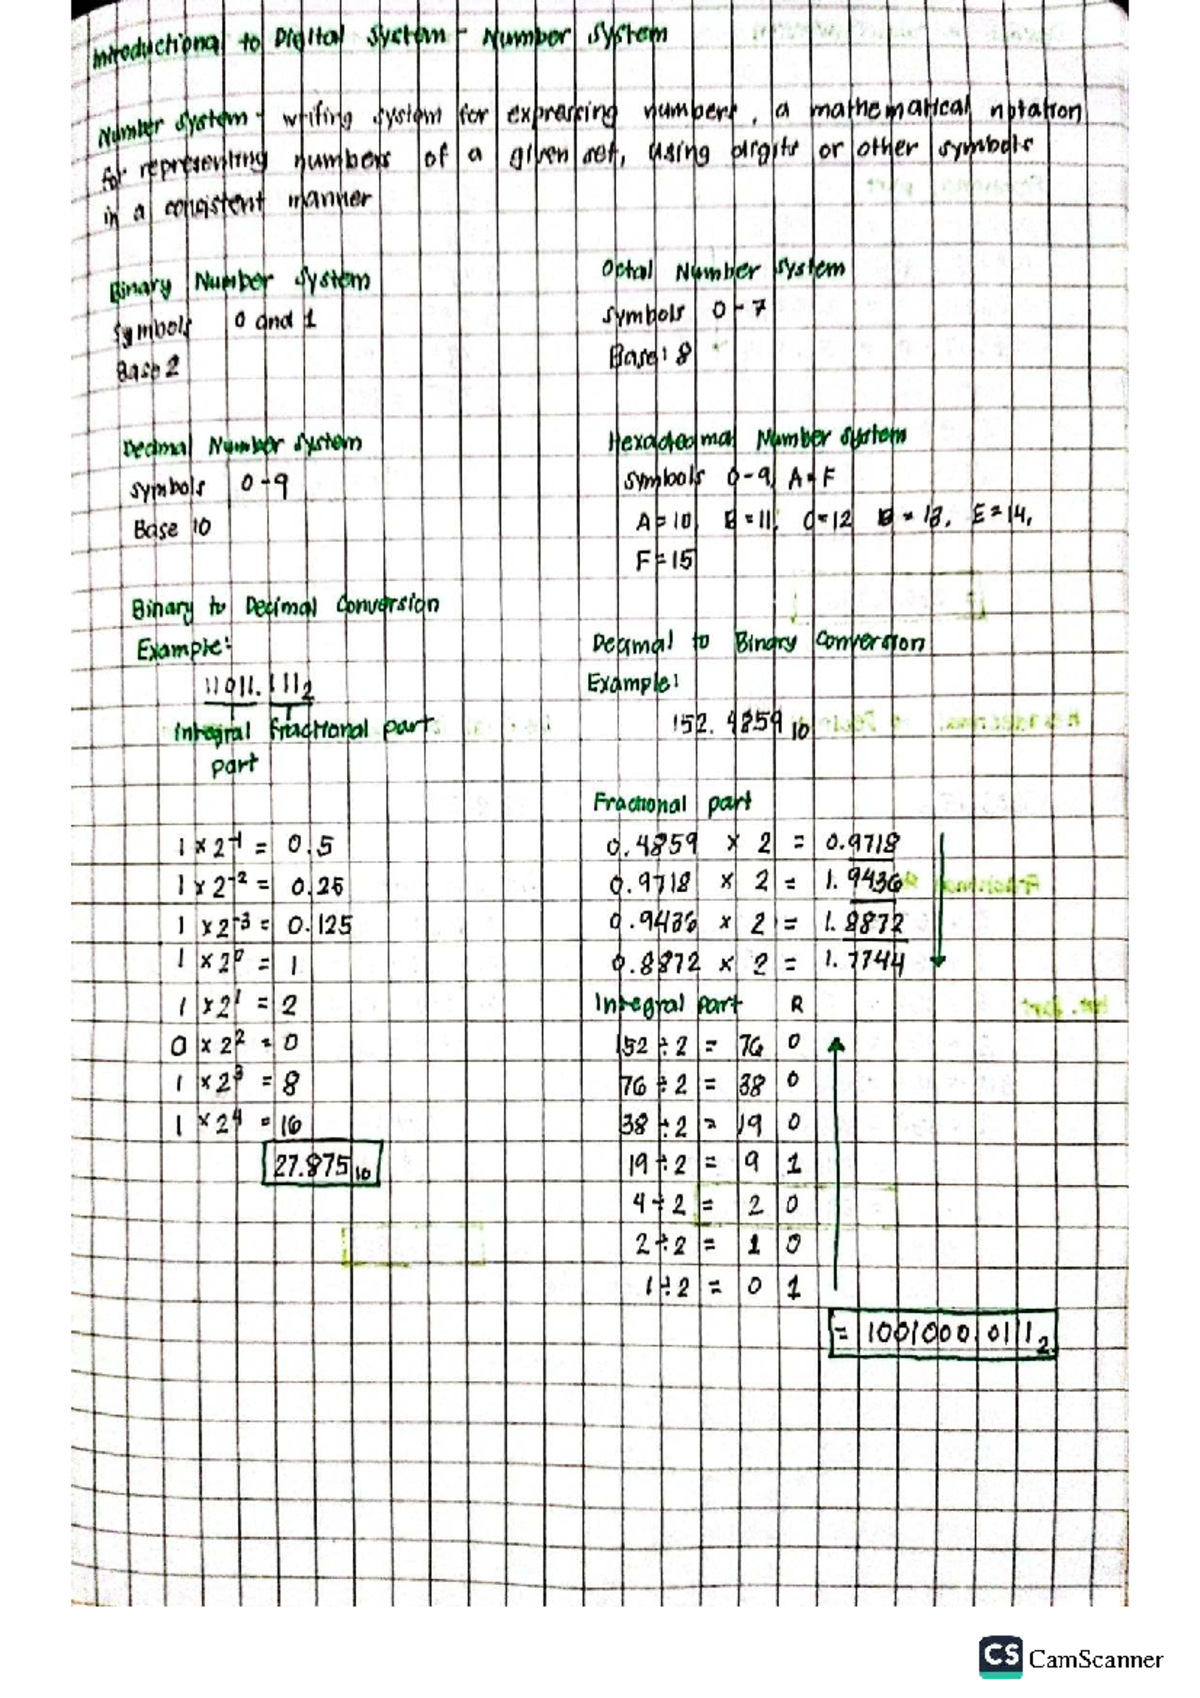 Introductiona to Digital System - Number System
Number System - writing system for expressing numbers, a mathematical notation
for representing numbers of a given set, using digits or other symbols
in a consistent manner
Binary Number System
Symbols 0 and 1
Base 2
Octal Number System
Symbols 0 - 7
Base: 8
Decimal Number System
Symbols 0 - 9
Base 10
Hexadecimal Number System
Symbols 0 - 9, A - F
A = 10, B = 11, C = 12 D = 13, E = 14,
F = 15
Binary to Decimal Conversion
Example:
11011.1112
Integral Fractional part
part
1 x 2-1 = 0.5
1 x 2-2 = 0.25
1 x 2-3 = 0.125
1 x 20 = 1
1 x 21 = 2
0 x 22 = 0
1 x 23 = 8
1 x 24 = 16
27.87510
Decimal to Binary Conversion
Example:
152.485910
Fractional part
0.4859 x 2 = 0.9718
0.9718 x 2 = 1.9436
0.9436 x 2 = 1.8872
0.8872 x 2 = 1.7744
Integral part R
152 ÷ 2 = 76 0
76 ÷ 2 = 38 0
38 ÷ 2 = 19 0
19 ÷ 2 = 9 1
4 ÷ 2 = 2 0
2 ÷ 2 = 1 0
1 ÷ 2 = 0 1
= 1001000.01112
CS CamScanner